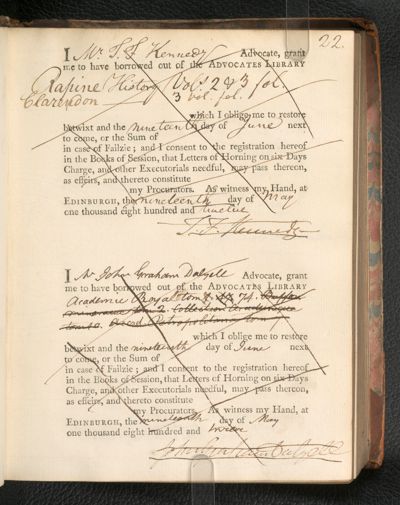 22.
I Mr T. F. Kennedy Advocate, grant
me to have borrowed out of the ADVOCATES LIBRARY
Rapine History Vols 2 & 3 fol.
Clarendon 3 vol. fol.
which I oblige me to restore
betwixt and the ninetanth day of June next
to come, or the Sum of
in case of Failzie; and I consent to the registration hereof
in the Books of Session, that Letters of Horning on six Days
Charge, and other Executorials needful, may pass thereon,
as effeirs, and thereto constitute
my Procurators. As witness my Hand, at
EDINBURGH, the nineteenth day of May
one thousand eight hundred and
T. F. Kennedy
I Mr John Graham Dalyell Advocate, grant
me to have borrowed out of the ADVOCATES LIBRARY
Academie Royal tom 74. Buffon
tom 2. Collection Academique
tom 10. Petropolitana tom
which I oblige me to restore
betwixt and the nineteenth day of June next
to come, or the Sum of
in case of Failzie; and I consent to the registration hereof
in the Books of Session, that Letters of Horning on six Days
Charge, and other Executorials needful, may pass thereon,
as effeirs, and thereto constitute
my Procurators. As witness my Hand, at
EDINBURGH, the nineteenth day of May
one thousand eight hundred and twelve
John Graham Dalyell